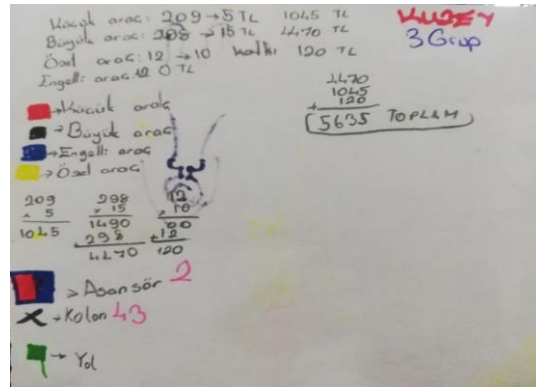 Küçük araç: 209→5 TL 1045 TL
Büyük araç: 298→15 TL 4470 TL
Özel araç: 12→10 katlı 120 TL
Engelli araç: 12 0 TL
KUZEY
3 Grup
4470
1045
+ 120
5635 TOPLAM
→Küçük araç
→Büyük araç
→Engelli araç
→Özel araç
209
x 5
1045
298
x 15
1490
+298
4470
12
x 10
00
+12
120
→Asansör 2
X→Kolon 43
→Yol